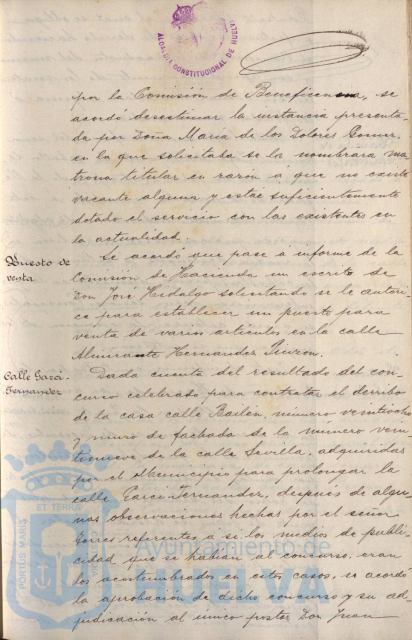 ALCALDIA CONSTITUCIONAL DE HUELVA
por la Comisión de Beneficencia, se
acordó desestimar la instancia presenta-
da por Doña Maria de los Dolores
en la que solicitaba se la nombrara ma-
trona titular en razón a que no existe
vacante alguna y estár suficientemente
dotado el servicio con las existentes en
la actualidad.
Puesto de
venta
Se acordó que pase a informe de la
Comisión de Hacienda un escrito de
Don José Hidalgo solicitando se le autori-
ce para establecer un puesto para
venta de varios articulos en la calle
Almirante Hernandez Pinzon.
Calle Garci-
Fernandez
Dada cuenta del resultado del con-
curso celebrado para contratar el derribo
de la casa calle Bailén, número veintiocho
y muro de fachada de la número vein-
tinueve de la calle Sevilla, adquiridas
por el Municipio para prolongar la
calle Garci-Fernandez, después de algu-
nas observaciones hechas por el señor
Garces referentes a si los medios de publi-
cidad que se habian al concurso, eran
los acostumbrados en estos casos, se acordó
la aprobación de dicho concurso y su ad-
judicación al único postor Don Juan
PORTUS MARIS ET TERRÆ
Ayuntamiento de
HUELVA